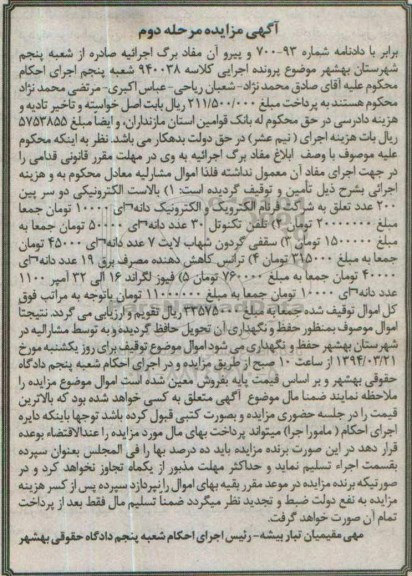 آگهی مزایده مرحله دوم
برابر با دادنامه شماره ۹۳-۷۰۰ و پیرو آن مفاد برگ اجرائیه صادره از شعبه پنجم
شهرستان بهشهر موضوع پرونده اجرایی کلاسه ۹۴۰۰۳۸ شعبه پنجم اجرای احکام
محکوم علیه آقای صادق محمد نژاد-شعبان ریاحی-عباس اکبری-مرتضی محمد نژاد
محکوم هستند به پرداخت مبلغ ۲۱۱/۵۰۰/۰۰۰ ریال بابت اصل خواسته و تاخیر تادیه و
هزینه دادرسی در حق محکوم له بانک قوامین استان مازندران، و ایضا مبلغ ۵۷۵۳۸۵۵
ریال بات هزینه اجرای ( نیم عشر) در حق دولت بدهکار می باشد. نظر به اینکه محکوم
علیه موصوف با وصف ابلاغ مفاد برگ اجرائیه به وی در مهلت مقرر قانونی قدامی را
در جهت اجرای مفاد آن معمول نداشته فلذا اموال مشارلیه معادل محکوم به و هزینه
اجرائی بشرح ذیل تأمین و توقیف گردیده است: ۱) بالاست الکترونیکی دو سر پین
۲۰۰ عدد تعلق به شرکت فرنام الکترویک و الکترونیک دانه ای ۱۰۰۰۰ تومان جمعا
مبلغ ۲۰۰۰۰۰۰ تومان ۲) تلفن تکنوتل ۳۰ عدد دانه ای ۵۰۰۰۰ تومان جمعا به
مبلغ ۱۵۰۰۰۰۰ تومان ۳) سقفی گردون شهاب لایت ۷ عدد دانه ای ۴۵۰۰۰ تومان
جمعا به مبلغ ۳۱۵۰۰۰ تومان ۴) ترانس کاهش دهنده مصرف برق ۱۹ عدد دانه ای
۴۰۰۰۰ تومان جمعا به مبلغ ۷۶۰۰۰۰ تومان ۵) فیوز لگراند ۱۶ الی ۳۲ آمپر ۱۱۰۰
عدد دانه ای ۱۰۰۰۰ تومان جمعا به مبلغ ۱۱۰۰۰۰۰۰ تومان باتوجه به مراتب فوق
کل اموال توقیف شده جمعا به مبلغ ریال تقویم و ارزیابی می گردد. نتیجتا
اموال موصوف بمنظور حفظ و نگهداری آن تحویل حافظ گردیده و به توسط مشارالیه در
شهرستان بهشهر حفظ و نگهداری می شود اموال موضوع توقیف برای روز یکشنبه مورخ
۱۳۹۴/۰۳/۲۱ از ساعت ۱۰ صبح از طریق مزایده و در اجرای احکام شعبه پنجم دادگاه
حقوقی بهشهر و بر اساس قیمت پایه بفروش معین شده است اموال موضوع مزایده را
ملاحظه نمایند ضمنا مال موضوع آگهی متعلق به کسی خواهد شده بود که بالاترین
قیمت را در جلسه حضوری مزایده و بصورت کتبی قبول کرده باشد توجها باینکه دایره
اجرای احکام ( مامور اجرا) میتواند پرداخت بهای مال مورد مزایده را عندالاقتضاء بوعده
قرار دهد در این صورت برنده مزایده باید ده درصد بها را فی المجلس بعنوان سپرده
بقسمت اجراء تسلیم نماید و حداکثر مهلت مذبور از یکماه تجاوز نخواهد کرد و در
صورتیکه برنده مزایده در موعد مقرر بقیه بهای اموال را نپردازد سپرده پس از کسر هزینه
مزایده به نفع دولت ضبط و تجدید نظر میگردد ضمناً تسلیم مال فقط بعد از پرداخت
تمام آن صورت خواهد گرفت.
مهی مقیمیان تبار پیشه- رئیس اجرای احکام شعبه پنجم دادگاه حقوقی بهشهر